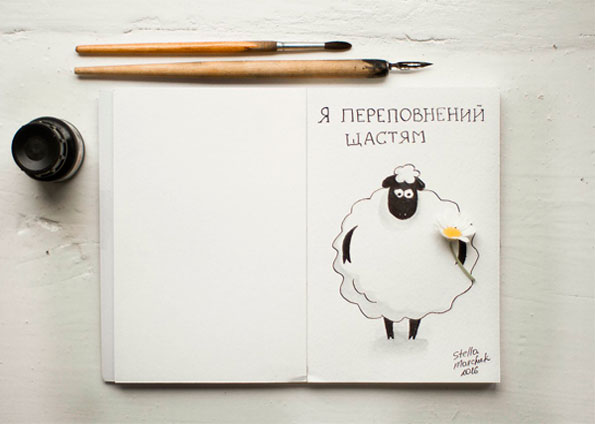 Я ПЕРЕПОВНЕНИЙ
ЩАСТЯМ
Stella
Marchuk
2016